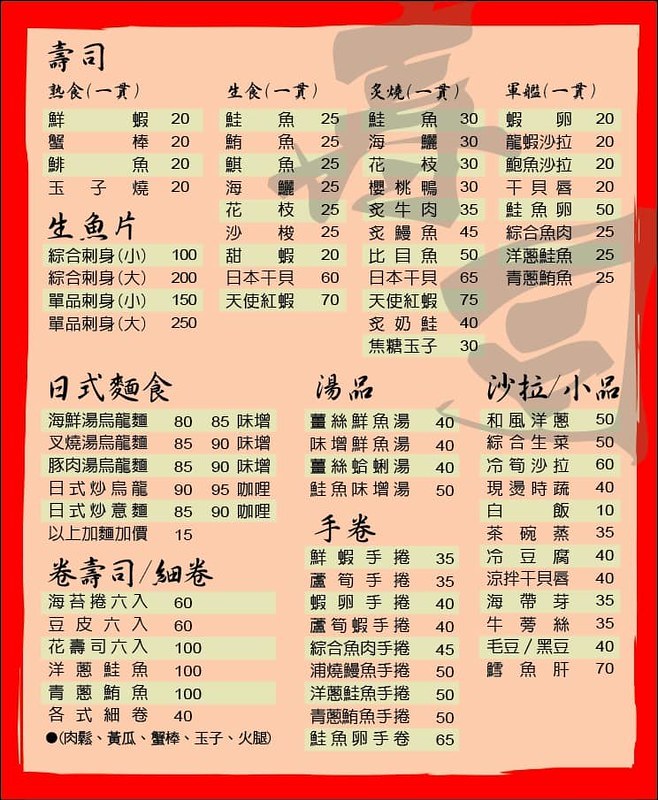 壽司
熟食(一貫)
鮮蝦 20
蟹棒 20
鯡魚 20
玉子燒 20
生食(一貫)
鮭魚 25
鮪魚 25
鯕魚 25
海鱺 25
花枝 25
沙梭 25
甜蝦 20
日本干貝 60
天使紅蝦 70
炙燒(一貫)
鮭魚 30
海鱺 30
花枝 30
櫻桃鴨 30
炙牛肉 35
炙鰻魚 45
比目魚 50
日本干貝 65
天使紅蝦 75
炙奶鮭 40
焦糖玉子 30
軍艦(一貫)
蝦卵 20
龍蝦沙拉 20
鮑魚沙拉 20
干貝唇 20
鮭魚卵 50
綜合魚肉 25
洋蔥鮭魚 25
青蔥鮪魚 25
生魚片
綜合刺身(小) 100
綜合刺身(大) 200
單品刺身(小) 150
單品刺身(大) 250
日式麵食
海鮮湯烏龍麵 80 85 味增
叉燒湯烏龍麵 85 90 味增
豚肉湯烏龍麵 85 90 味增
日式炒烏龍 90 95 咖哩
日式炒意麵 85 90 咖哩
以上加麵加價 15
卷壽司/細卷
海苔捲六入 60
豆皮六入 60
花壽司六入 100
洋蔥鮭魚 100
青蔥鮪魚 100
各式細卷 40
●(肉鬆、黃瓜、蟹棒、玉子、火腿)
湯品
薑絲鮮魚湯 40
味增鮮魚湯 40
薑絲蛤蜊湯 40
鮭魚味增湯 50
手卷
鮮蝦手捲 35
蘆筍手捲 35
蝦卵手捲 40
蘆筍蝦手捲 40
綜合魚肉手捲 45
浦燒鰻魚手捲 50
洋蔥鮭魚手捲 50
青蔥鮪魚手捲 50
鮭魚卵手卷 65
沙拉/小品
和風洋蔥 50
綜合生菜 50
冷筍沙拉 60
現燙時蔬 40
白飯 10
茶碗蒸 35
冷豆腐 40
涼拌干貝唇 40
海帶芽 35
牛蒡絲 35
毛豆/黑豆 40
鱈魚肝 70
壽司